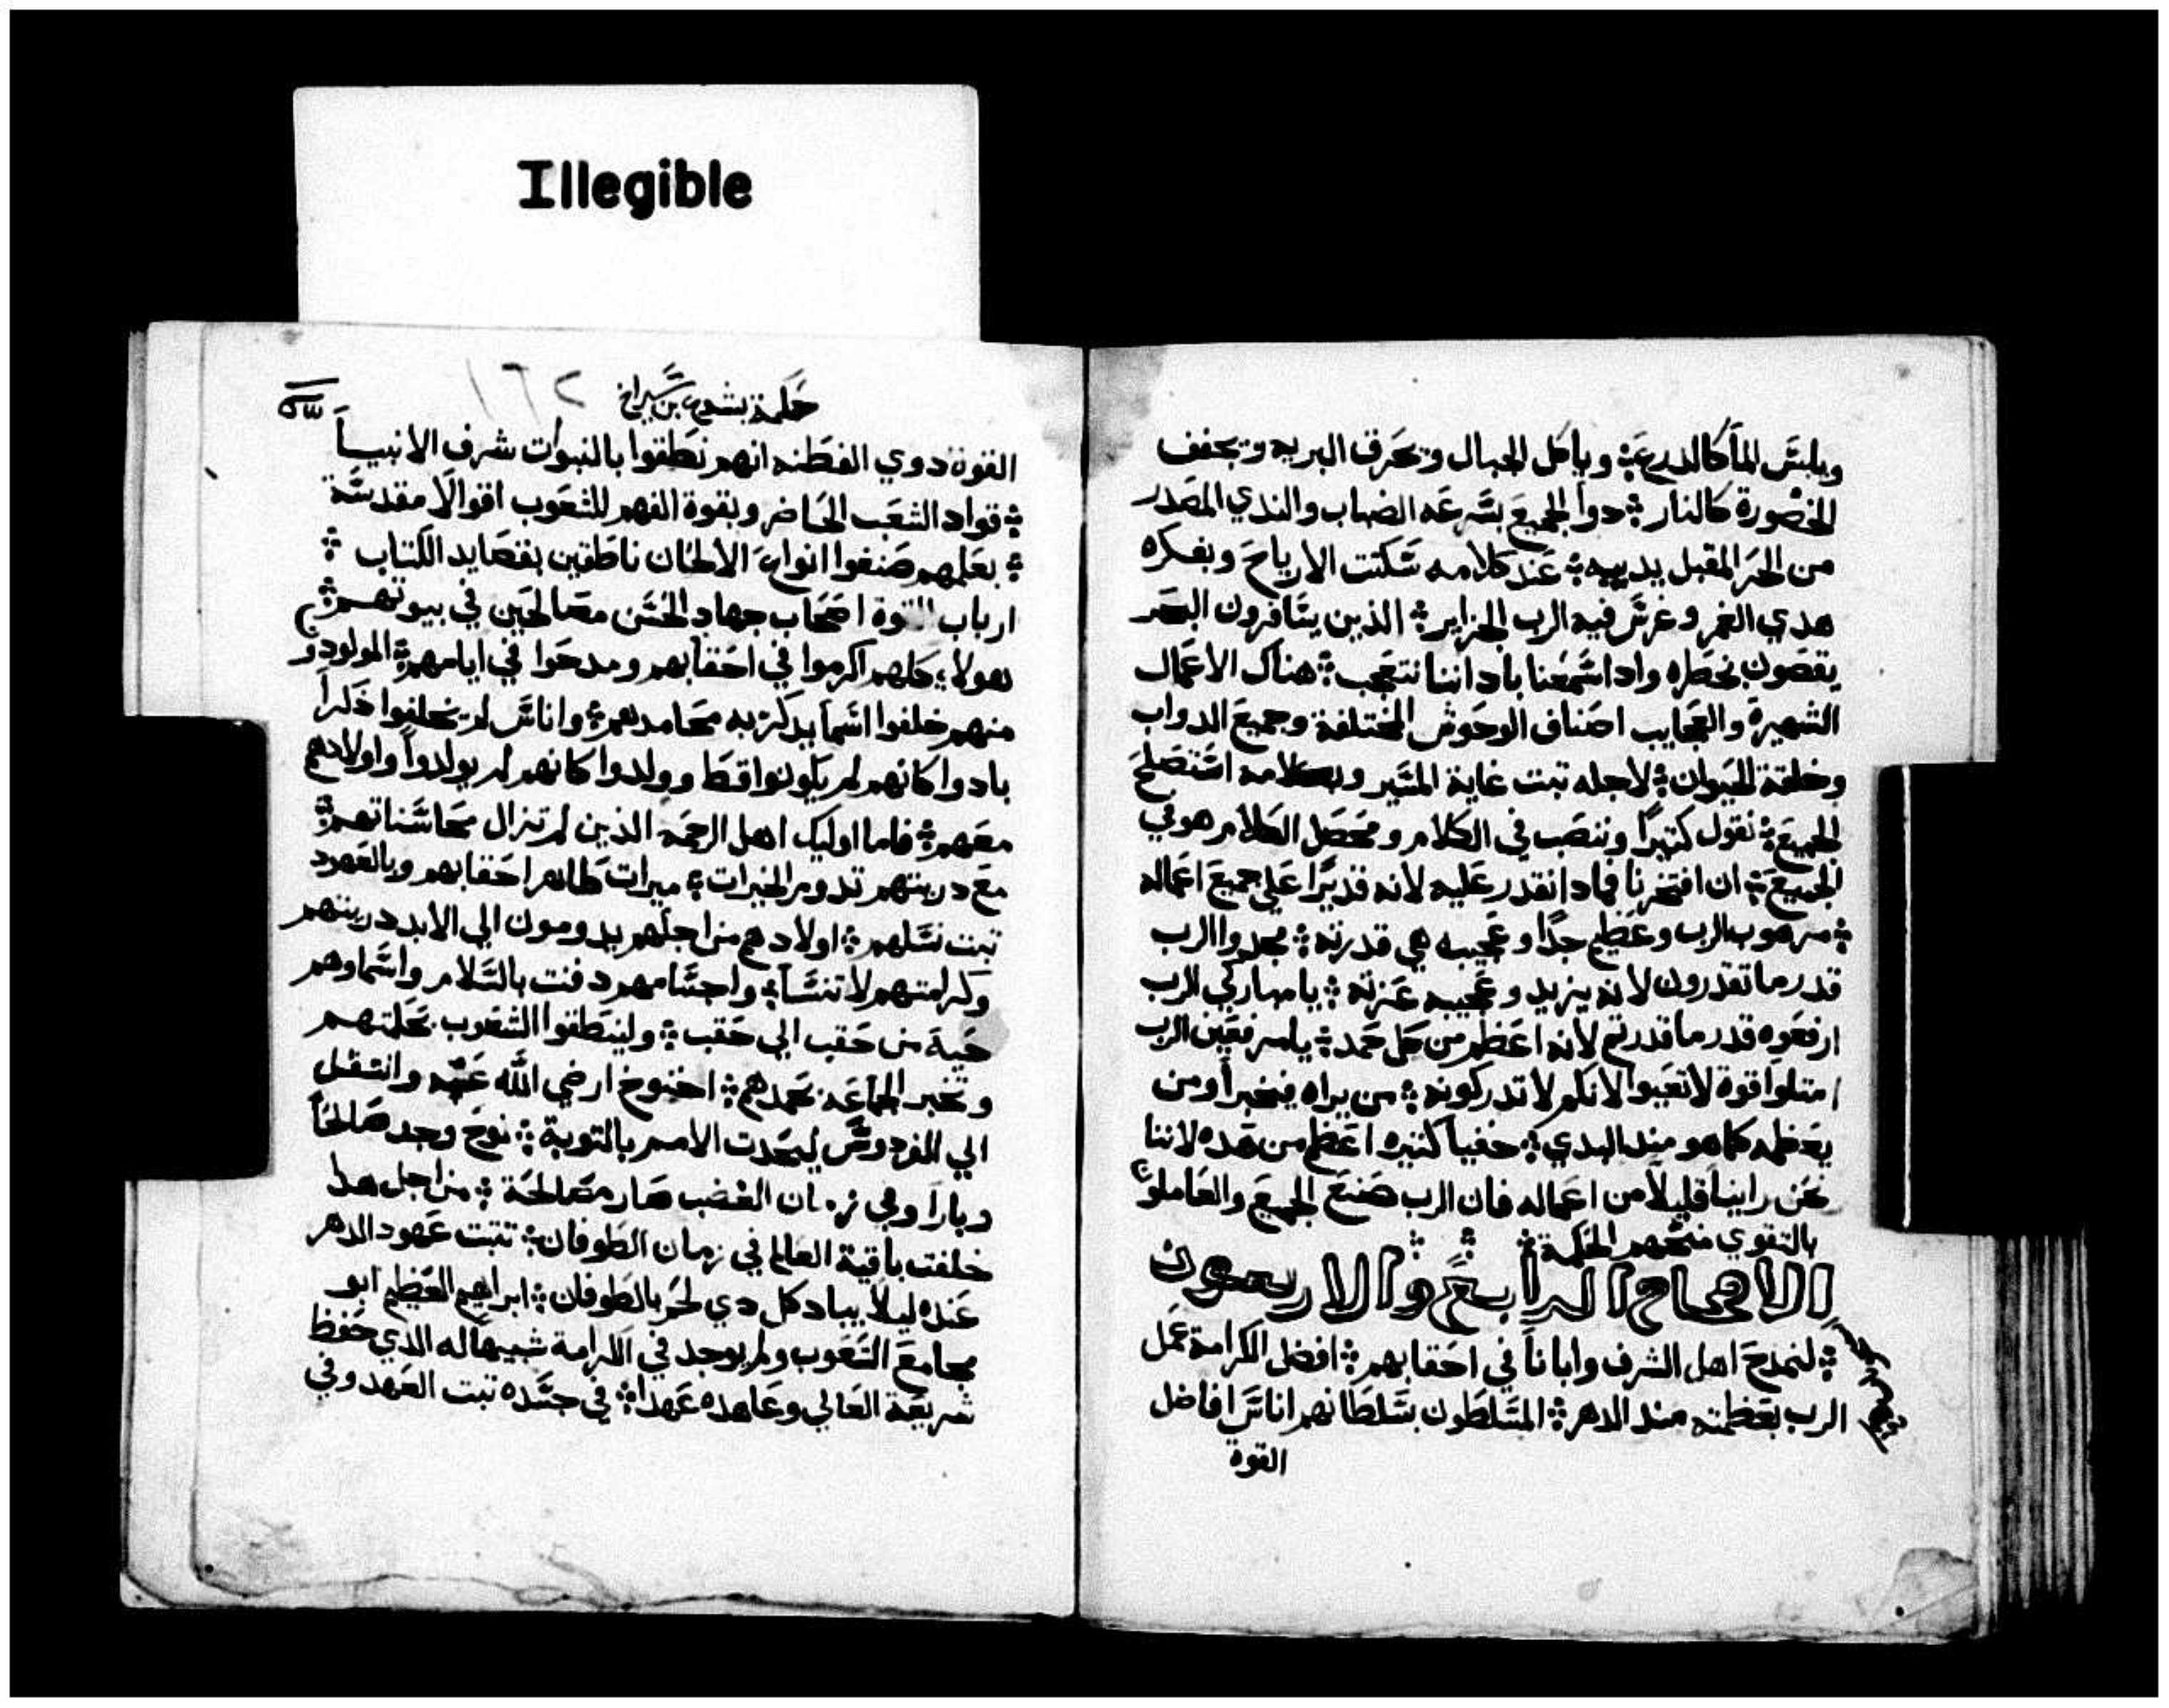 Illegible
ويلبس المآ كالدرع ܀ وياكل الجبال وتحرق البريه وتجفف
الخضورة كالنار ܀ دوا الجميع بسرعه الضباب والندي المصدر
من الحر المقبل يدييه ܀ عند كلامه سكتت الارياح وبفكره
هدي الغمر وغرس فيه الرب الجزاير ܀ الذين يسافرون البحر
يقصون بخطره واداسمعنا باداننا نتعجب ܀ هناك الاعمال
الشهيرة والعجايب اصناف الوحوش المختلفة وجميع الدواب
وخلقة الحيوان ܀ لاجله تبت غاية المسير وبكلامه استصلح
الجميع ܀ نقول كتيرًا وننصب في الكلام ومحصل الكلام هو في
الجميع ܀ ان افتخرنا فمادا نقدر عليه لانه قديرًا علي جميع اعماله
܀ مرهوب الرب وعظيم جدًا وعجيبه هي قدرته ܀ مجدوا الرب
قدر ما تقدرون لانه يزيد وعجيبه عزته ܀ يا مباركي الرب
ارفعوه قدر ما قدرتم لانه اعظم من كل حمد ܀ يا مرفعين الرب
امتلوا قوة لا تعيوا لانكم لا تدركونه ܀ من يراه فيخبرا ومن
يعظمه كما هو مند البدي ܀ خفيا كتيره اعظم من هده لاننا
نحن راينا قليلاً من اعماله فان الرب صنع الجميع والعاملون
بالتقوي منحهم الحكمة ܀ ܀ ܀
الاصحاح الرابع والاربعون
܀ لنمدح اهل الشرف واباناً في احقابهم ܀ افضل الكرامة عمل
الرب بعظمته مند الدهر ܀ المتسلطون بسلطانهم اناس افاضل
القوة
حكمة يشوع بن سيراخ ١٦٢
القوة دوي الفطنه انهم نطقوا بالنبوات شرف الانبيآ
܀ قواد الشعب الحاضر وبقوة الفهم للشعوب اقوالاً مقدسة
܀ بعلمهم صنفوا انواع الالحان ناطقين بقصايد الكتاب ܀
ارباب القوة اصحاب جهاد الحسن مصالحين في بيوتهم ܀
هولاء كلهم اكرموا في احقابهم ومدحوا في ايامهم ܀ المولودو
منهم خلفوا اسما يدكر به محامدهم ܀ واناس لم يخلفوا دكراً
بادوا كانهم لم يكونوا قط وولدوا كانهم لم يولدوا واولادهم
معهم ܀ فاما اوليك اهل الرحمه الذين لم تزال محاسناتهم ܀
مع دريتهم تدوم الخيرات ܀ ميرات طاهر احقابهم وبالعهود
تبت نسلهم ܀ اولادهم من اجلهم يدومون الي الابد دريتهم
وكرامتهم لا تنسا ܀ واجسامهم دفنت بالسلام واسماوهم
حية من حقب الي حقب ܀ ولينطقوا الشعوب بحكمتهم
وتخبر الجماعه بحمدهم ܀ اخنوخ ارضي الله عنه وانتقل
الي الفردوس ليحدت الامم بالتوبة ܀ نوح وجد صالحاً
دباراً وفي زمان الغضب صار مصالحة ܀ من اجل هدا
خلفت باقية العالم في زمان الطوفان ܀ تتبت عهود الدهر
عنده ليلا يباد كل دي لحم بالطوفان ܀ ابراهيم العظيم ابو
مجامع الشعوب ولم يوجد في الكرامة شبيهاله الدي حفظ
شريعة العالي وعاهده عهدا ܀ في جسده تبت العهد وفي